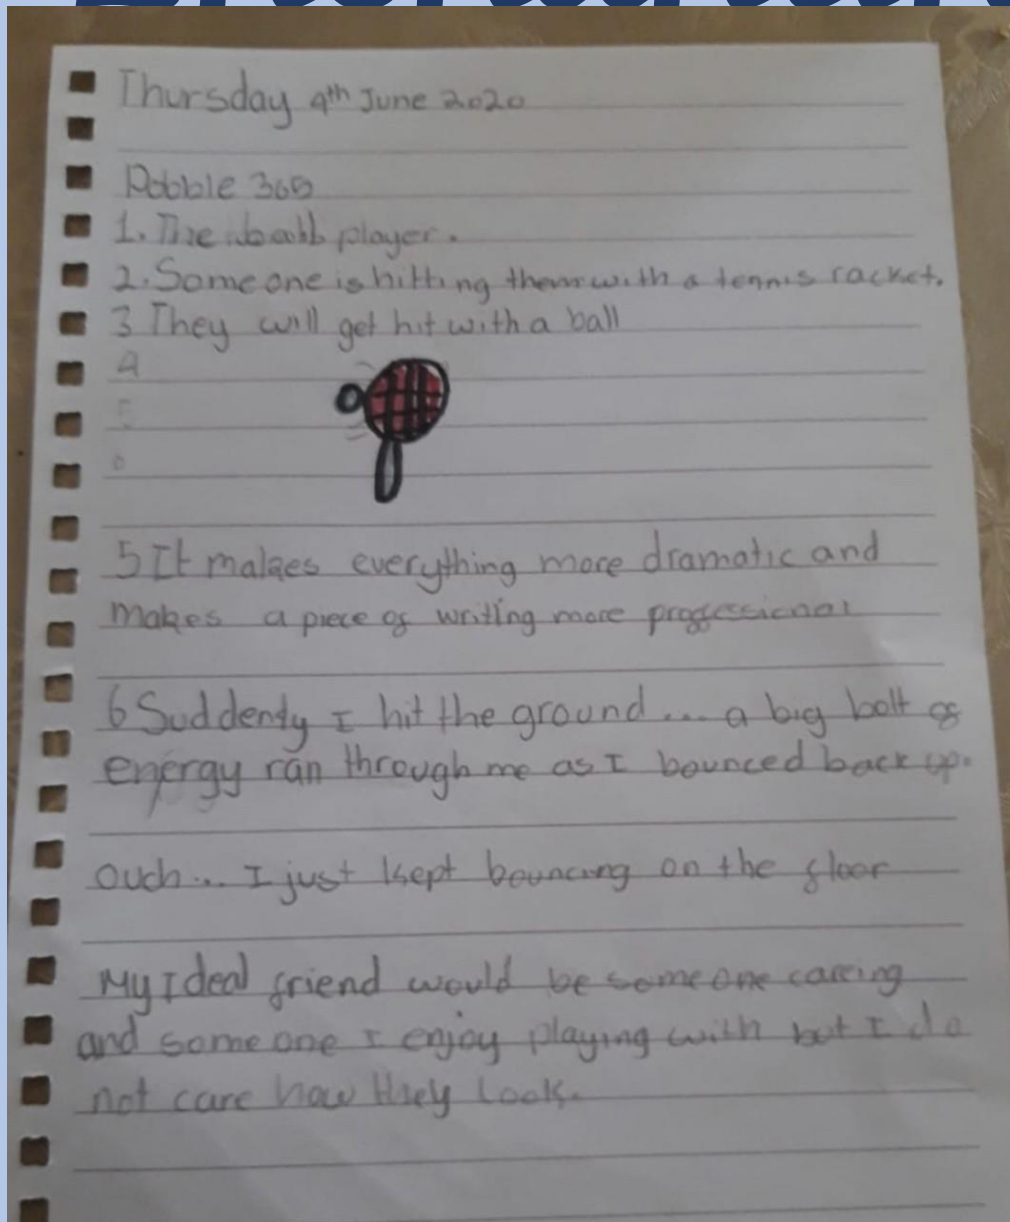 Thursday 4th June 2020
Pobble 365
1. The ball player.
2. Someone is hitting them with a tennis racket.
3 They will get hit with a ball
4
5 It makes everything more dramatic and
makes a piece of writing more professional
6 Suddenly I hit the ground... a big bolt of
energy ran through me as I bounced back up.
Ouch... I just kept bouncing on the floor
My Ideal friend would be someone carring
and someone I enjoy playing with but I do
not care how they look.